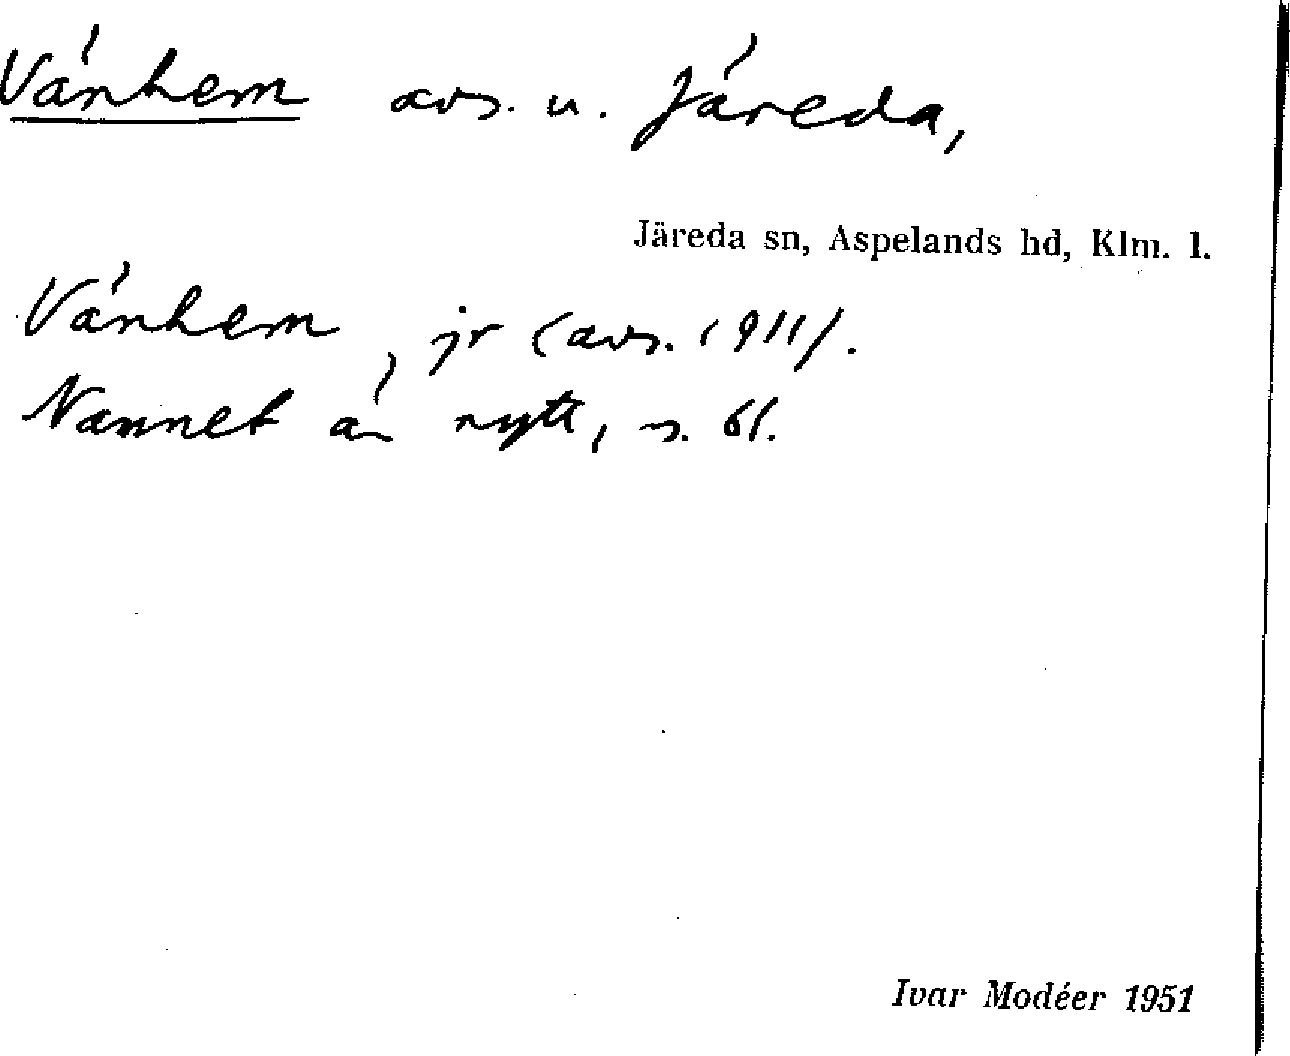 Vänhem avs. u. Järeda,
Järeda sn, Aspelands hd, Klm. l.
Vänhem, jr (avs. 1911).
Namnet är nytt, s. bl.
Ivar Modéer 1951